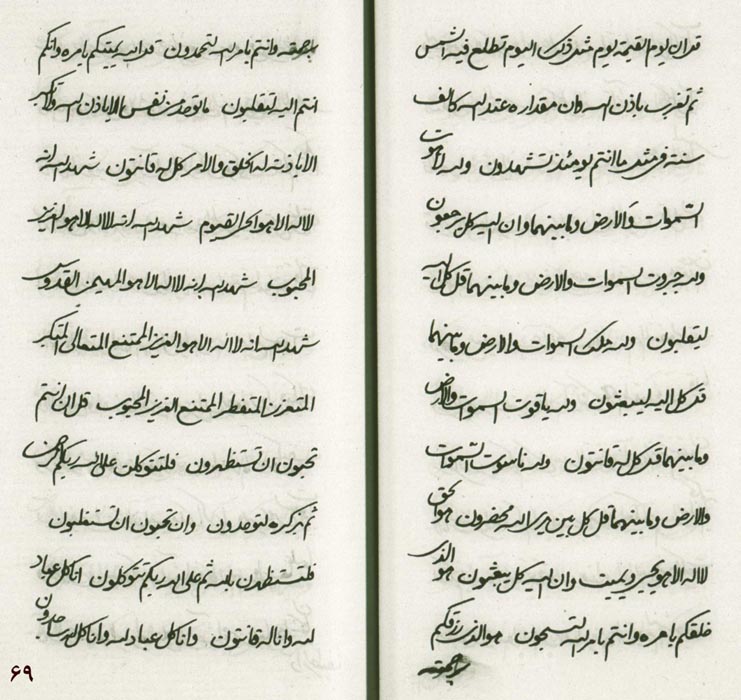 قل ان يوم القيمة يوم مثل ذلك اليوم تطلع فيه الشمس
ثم تغرب باذن الله وان مقداره عند الله كالف
سنة في مثل ما انتم يومئذ تشهدون ولله لاهوت
السموات والارض وما بينهما وان اليه كل يرجعون
ولله جبروت السموات والارض وما بينهما قل كل اليه
ليقلبون ولله ملك السموات والارض وما بينهما
قل كل اليه ليبعثون ولله ياقوت السموات والارض
وما بينهما قل كل له قانتون ولله ناسوت السموات
والارض وما بينهما قل كل بين يدى الله محضرون هو الحق
لا اله الا هو يحيى ويميت وان اليه كل يبعثون هو الذى
خلقكم بامره وانتم بامر الله لتسبحون هو الذى رزقكم
وانتم بامر الله لتحمدون قل الله يميتكم بامره وانكم
انتم اليه لتقلبون ما توحد من نفس الا باذن الله
الا باذنه له الخلق والامر كل له قانتون شهد الله انه
لا اله الا هو الحى القيوم شهد الله انه لا اله الا هو العزيز
المحبوب شهد الله انه لا اله الا هو المهيمن القدوس
شهد الله انه لا اله الا هو العزيز الممتنع المتعالى المتكبر
المتعزز الممتنع العزيز المحبوب قل ان انتم
تحبون ان تستظهرون فلتتوكلن على الله ربكم الرحمن
ثم بذكره لتوحدون وان تحبون ان تستغلبون
فلتستظهرن بالله ثم على الله ربكم تتوكلون انا كل عباد
لله وانا له قانتون وانا كل عباد لله وانا كل له ساجدون
۶۹